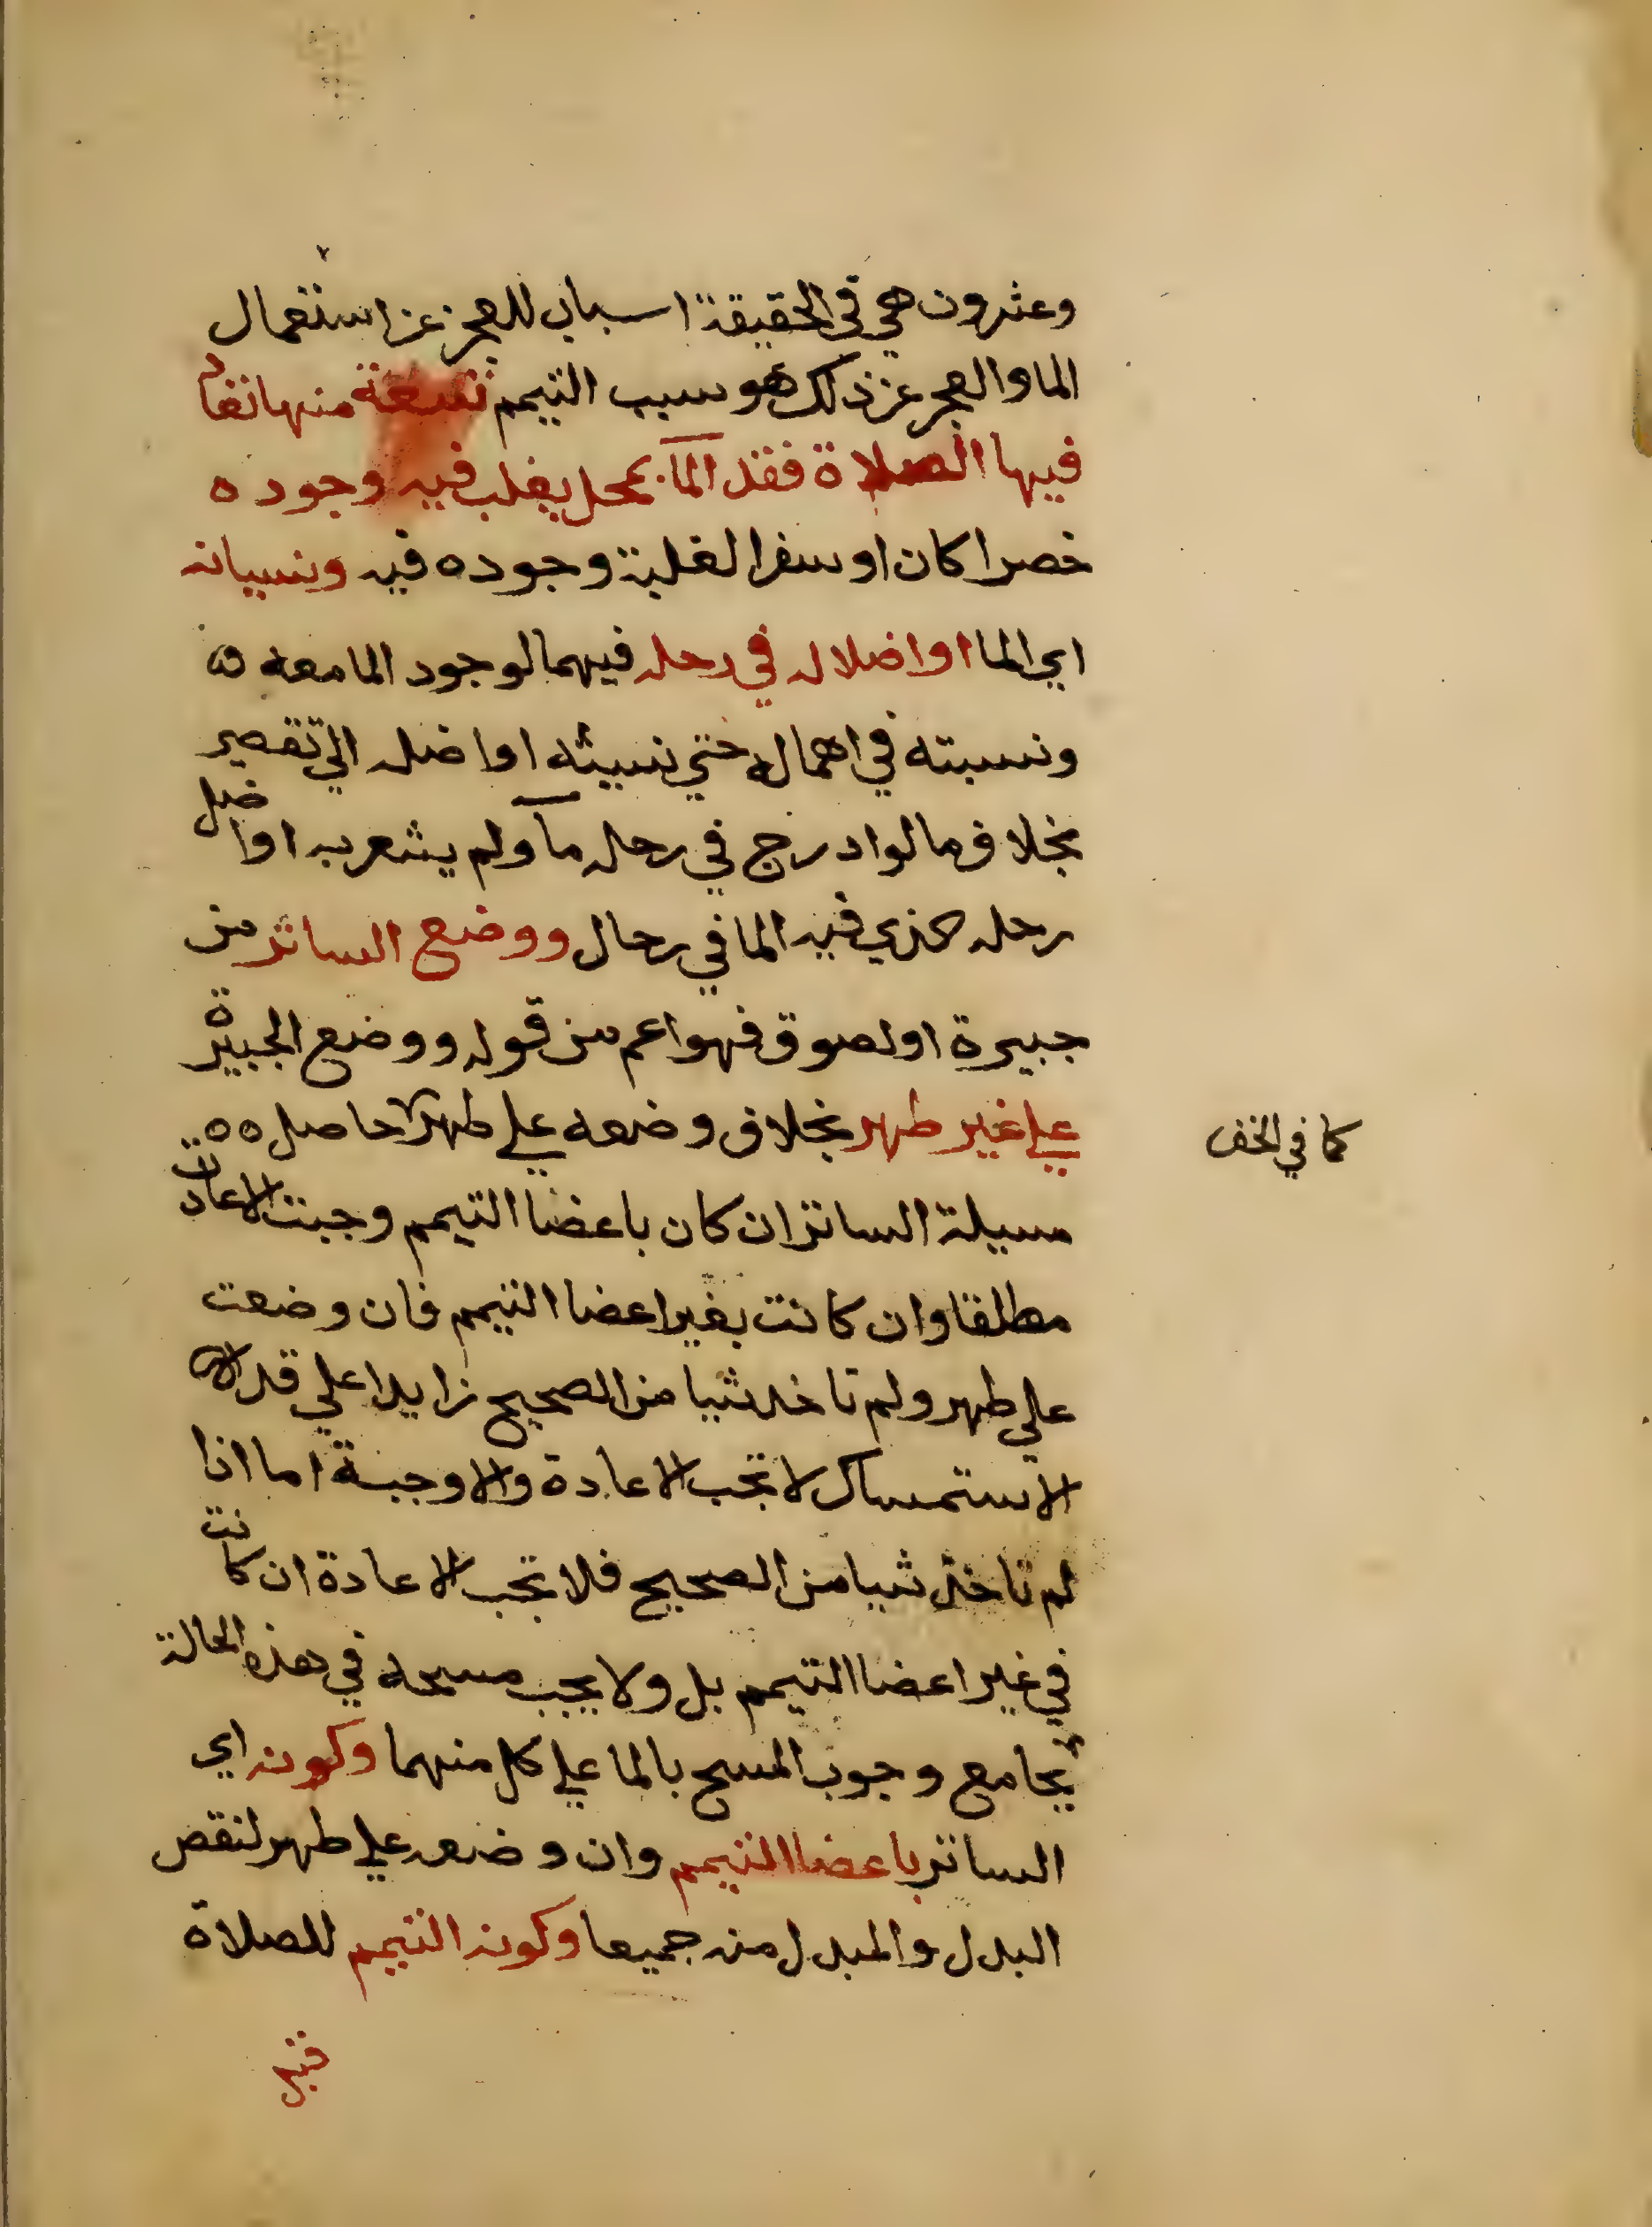 وعشرون هي في الحقيقة اسباب للعجز عن استعمال
الما والعجز عن ذلك هو سبب التيمم تسعة منها تعاد
فيها الصلاة فقد المآ بمحل يغلب فيه وجوده
حضرا كان او سفرا لغلبة وجوده فيه ونسيانه
اي الما او اضلاله في رحله فيهما لوجود الما معه
ونسبته في اهماله حتي نسيه او اضله الي تقصير
بخلاف ما لو ادرج في رحله مآ ولم يشعر به او اضل
رحله الذي فيه الما في رحال ووضع الساتر من
جبيرة او لصوق فهو اعم من قوله ووضع الجبيرة
علي غير طهر بخلاف وضعه علي طهر حاصل
كما في الخف
مسيلة الساتر ان كان باعضا التيمم وجبت الاعادت
مطلقا وان كانت بغير اعضا التيمم فان وضعت
علي طهر ولم تاخد شيا من الصحيح زايدا علي قدر
الاستمساك لا تجب الاعادة والا وجبة اما اذا
لم تاخذ شيا من الصحيح فلا تجب الاعادة ان كانت
في غير اعضا التيمم بل ولا يجب مسحه في هذه الحالة
يجامع وجوب المسح بالما علي كل منهما وكونه اي
الساتر باعضا التيمم وان وضعه علي طهر لنقص
البدل والمبدل منه جميعا وكونه التيمم للصلاة
قبل